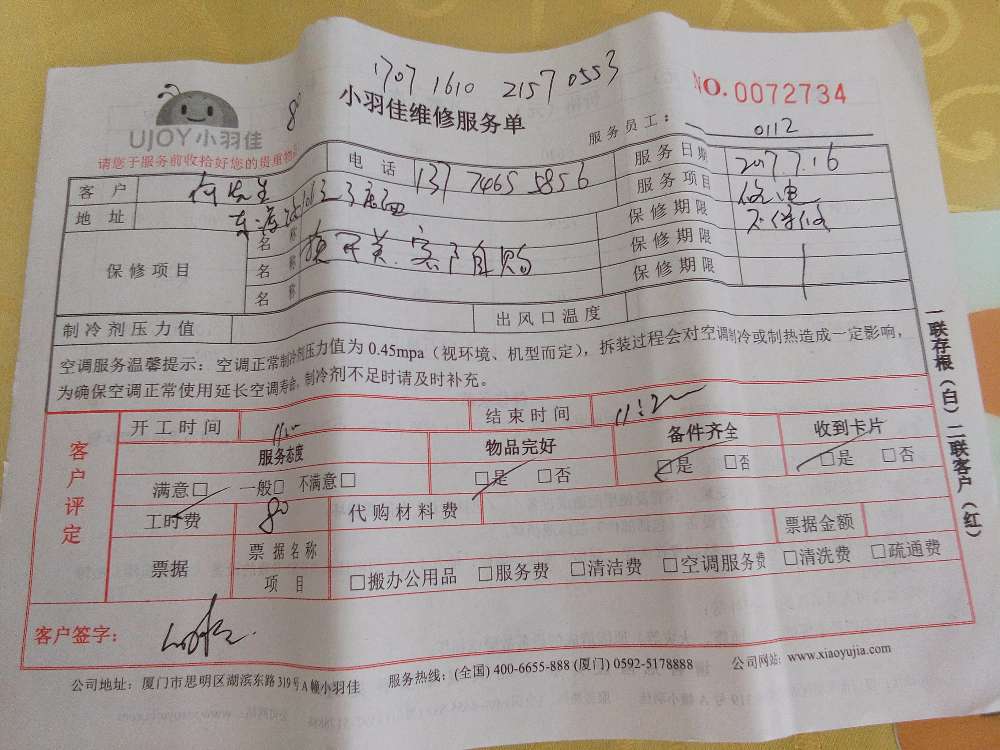 1707 1610 2157 0553
NO.0072734
UJOY小羽佳
80
小羽佳维修服务单
服务员工: 0112
请您于服务前收拾好您的贵重物品
客户 何先生 电话 137 7465 5856 服务日期 2017.7.16
地址 服务项目 修电
保修项目 名称 保修期限 不保修
名称 换开关.客户自购 保修期限
名称 保修期限
制冷剂压力值 出风口温度
空调服务温馨提示:空调正常制冷剂压力值为0.45mpa(视环境、机型而定),拆装过程会对空调制冷或制热造成一定影响,
为确保空调正常使用延长空调寿命,制冷剂不足时请及时补充。
客户评定
开工时间 结束时间
服务态度 物品完好 备件齐全 收到卡片
满意□ 一般□ 不满意□ □是 □否 □是 □否 □是 □否
工时费 80 代购材料费
票据 票据名称 票据金额
项目 □搬办公用品 □服务费 □清洁费 □空调服务费 □清洗费 □疏通费
客户签字:
公司地址:厦门市思明区湖滨东路319号A幢小羽佳 服务热线:(全国)400-6655-888(厦门)0592-5178888 公司网站:www.xiaoyujia.com
一联存根(白)二联客户(红)